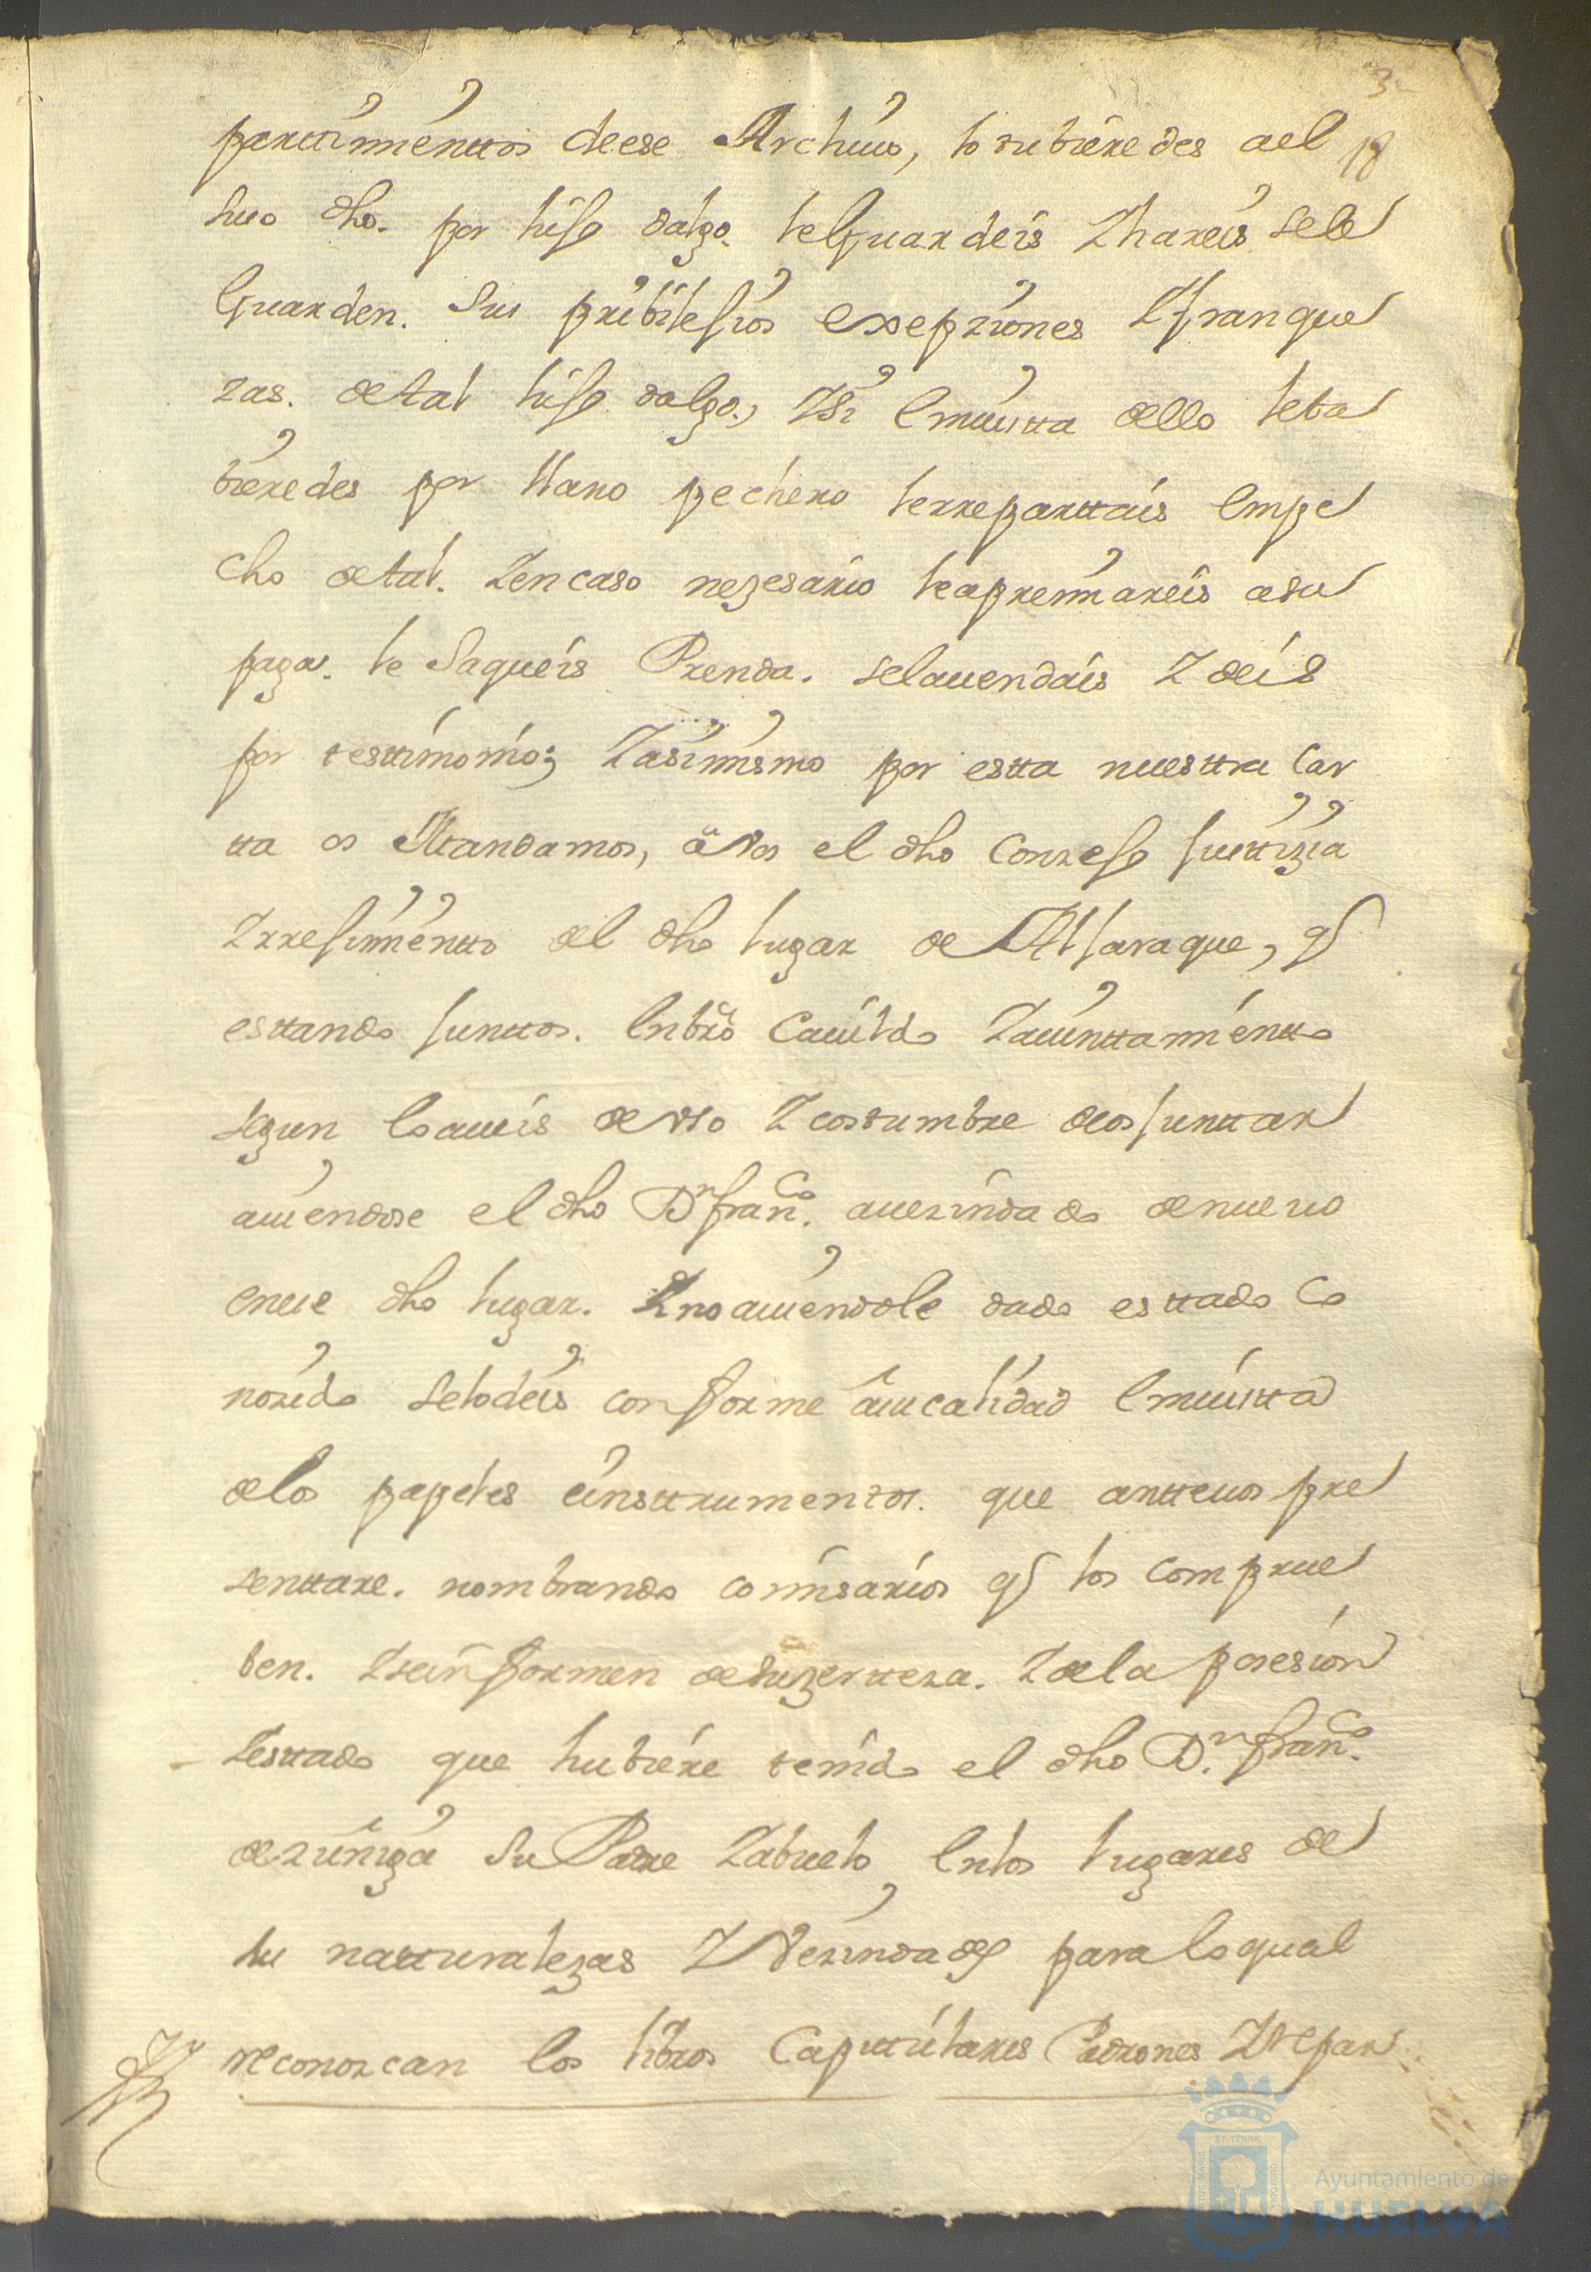 3
parttimienttos deese Archivo, lo tubieredes ael 18
suso dho. por hijo dalgo. le guardeis Y hareis sele
Guarden. Sus pribilejios exepziones Y franque
zas. de tal hijo dalgo, Y si en vistta dello le ha
biéredes por llano pechero le rreparttais en pe
cho de tal. Y en caso nezesario le apremiareis a su
paga. le saqueis Prenda. se la vendais Y deis
por testtimonio; Y asimismo por estta nuesttra Car
tta os Mandamos, â Vos el dho Conzejo Justtizia
Y rrejimientto del dho lugar de Aljaraque, q
esttando junttos. en bro Cavildo Y aiunttamientto
segun lo aveis de uso Y costumbre deos junttar
aviendose el dho Dn franco. avezindado de nuevo
en ese dho lugar. Y no aviendole dado esttado Co
nozido se lo deis conforme â su calidad en vistta
de los papeles e insttrumentos. que antte vos pre
senttare. nombrando comisarios q los comprue
ben. Y se informen de su zertteza. Y de la posesion
Y esttado que hubiére tenido el dho Dn. franco.
de zuñiga su Padre Y abuelo en los lugares de
su natturalezas Y Vezindades para lo qual
reconozcan los libros Capittulares Padrones Y repar
Ayuntamiento de
HUELVA